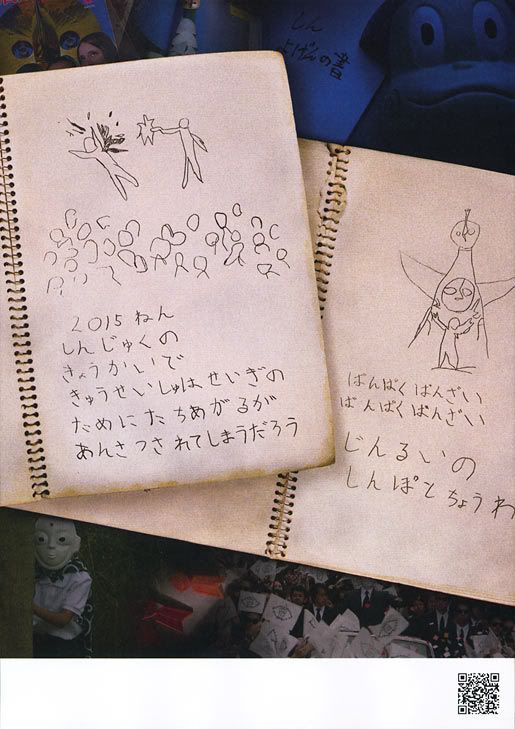 しん
よげんの書
2015ねん
しんじゅくの
きょうかいで
きゅうせいしゅはせいぎの
ためにたちあがるが
あんさつされてしまうだろう
ばんぱくばんざい
ばんぱくばんざい
じんるいの
しんぽとちょうわ